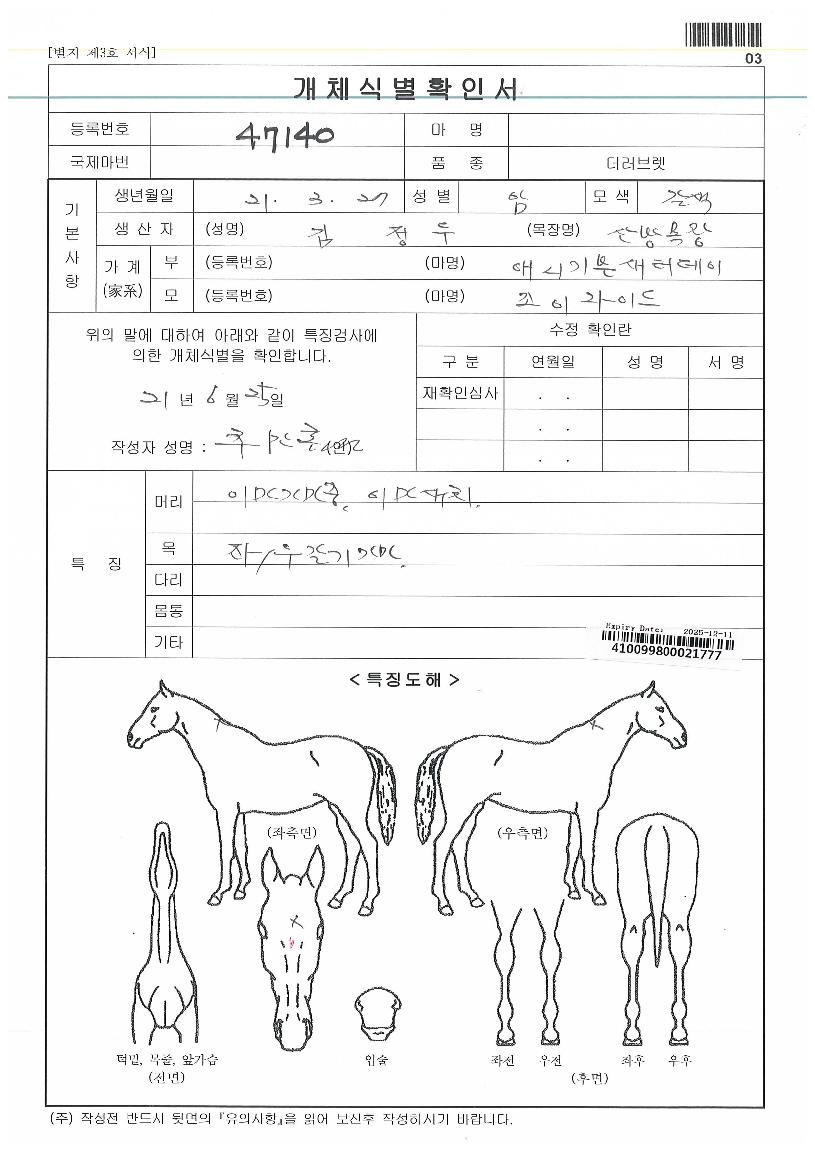 [별지 제3호 서식]
03
개체식별확인서
등록번호 47140 마 명
국제마번 품 종 더러브렛
기본사항
생년월일 21. 3. 27 성별 암 모색 갈색
생산자 (성명) 김 정 두 (목장명) 산방목장
가계(家系) 부 (등록번호) (마명) 애시기본새터데이
모 (등록번호) (마명) 조이라이드
위의 말에 대하여 아래와 같이 특징검사에
의한 개체식별을 확인합니다.
21 년 6 월 25일
작성자 성명 :
수정 확인란
구 분 연월일 성 명 서 명
재확인심사 . .
. .
. .
특 징
머리
목 좌/우갈기
다리
몸통
기타
Expiry Date: 2025-12-11
410099800021777
< 특징도해 >
(좌측면) (우측면)
턱밑, 목줄, 앞가슴 입술 좌전 우전 좌후 우후
(전면) (후면)
(주) 작성전 반드시 뒷면의 『유의사항』을 읽어 보신후 작성하시기 바랍니다.